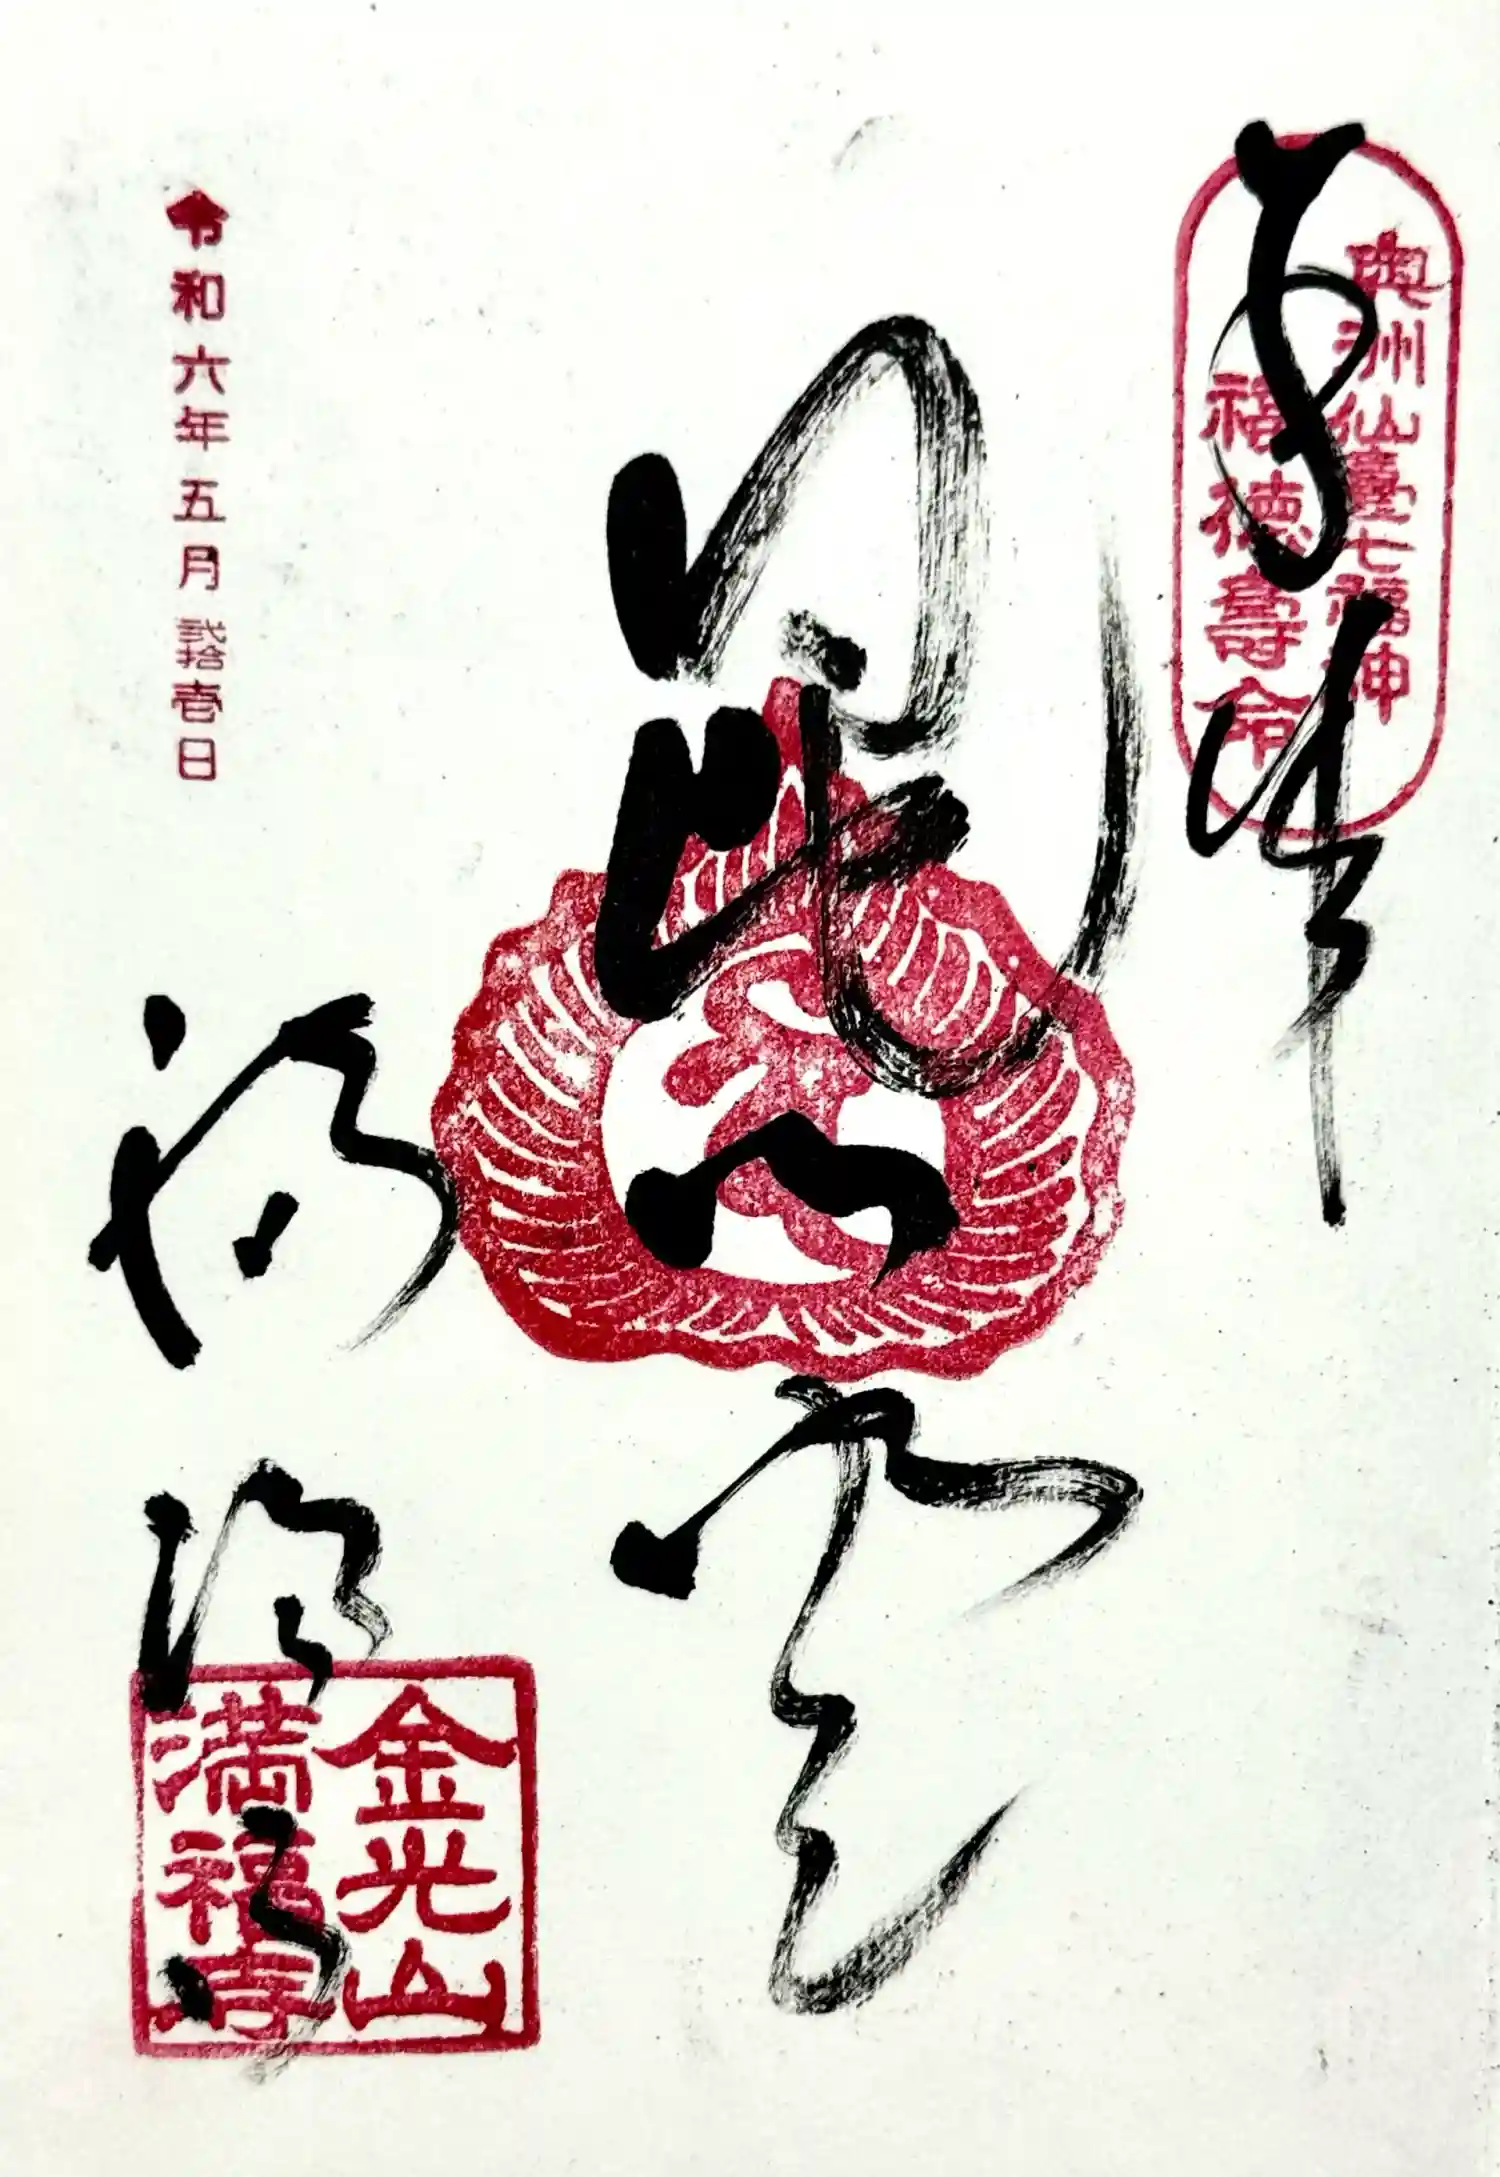 奉拝
奥州仙臺七福神
福徳壽命
毘沙門天
令和六年五月弐拾壱日
満福寺
金光山
満福寺